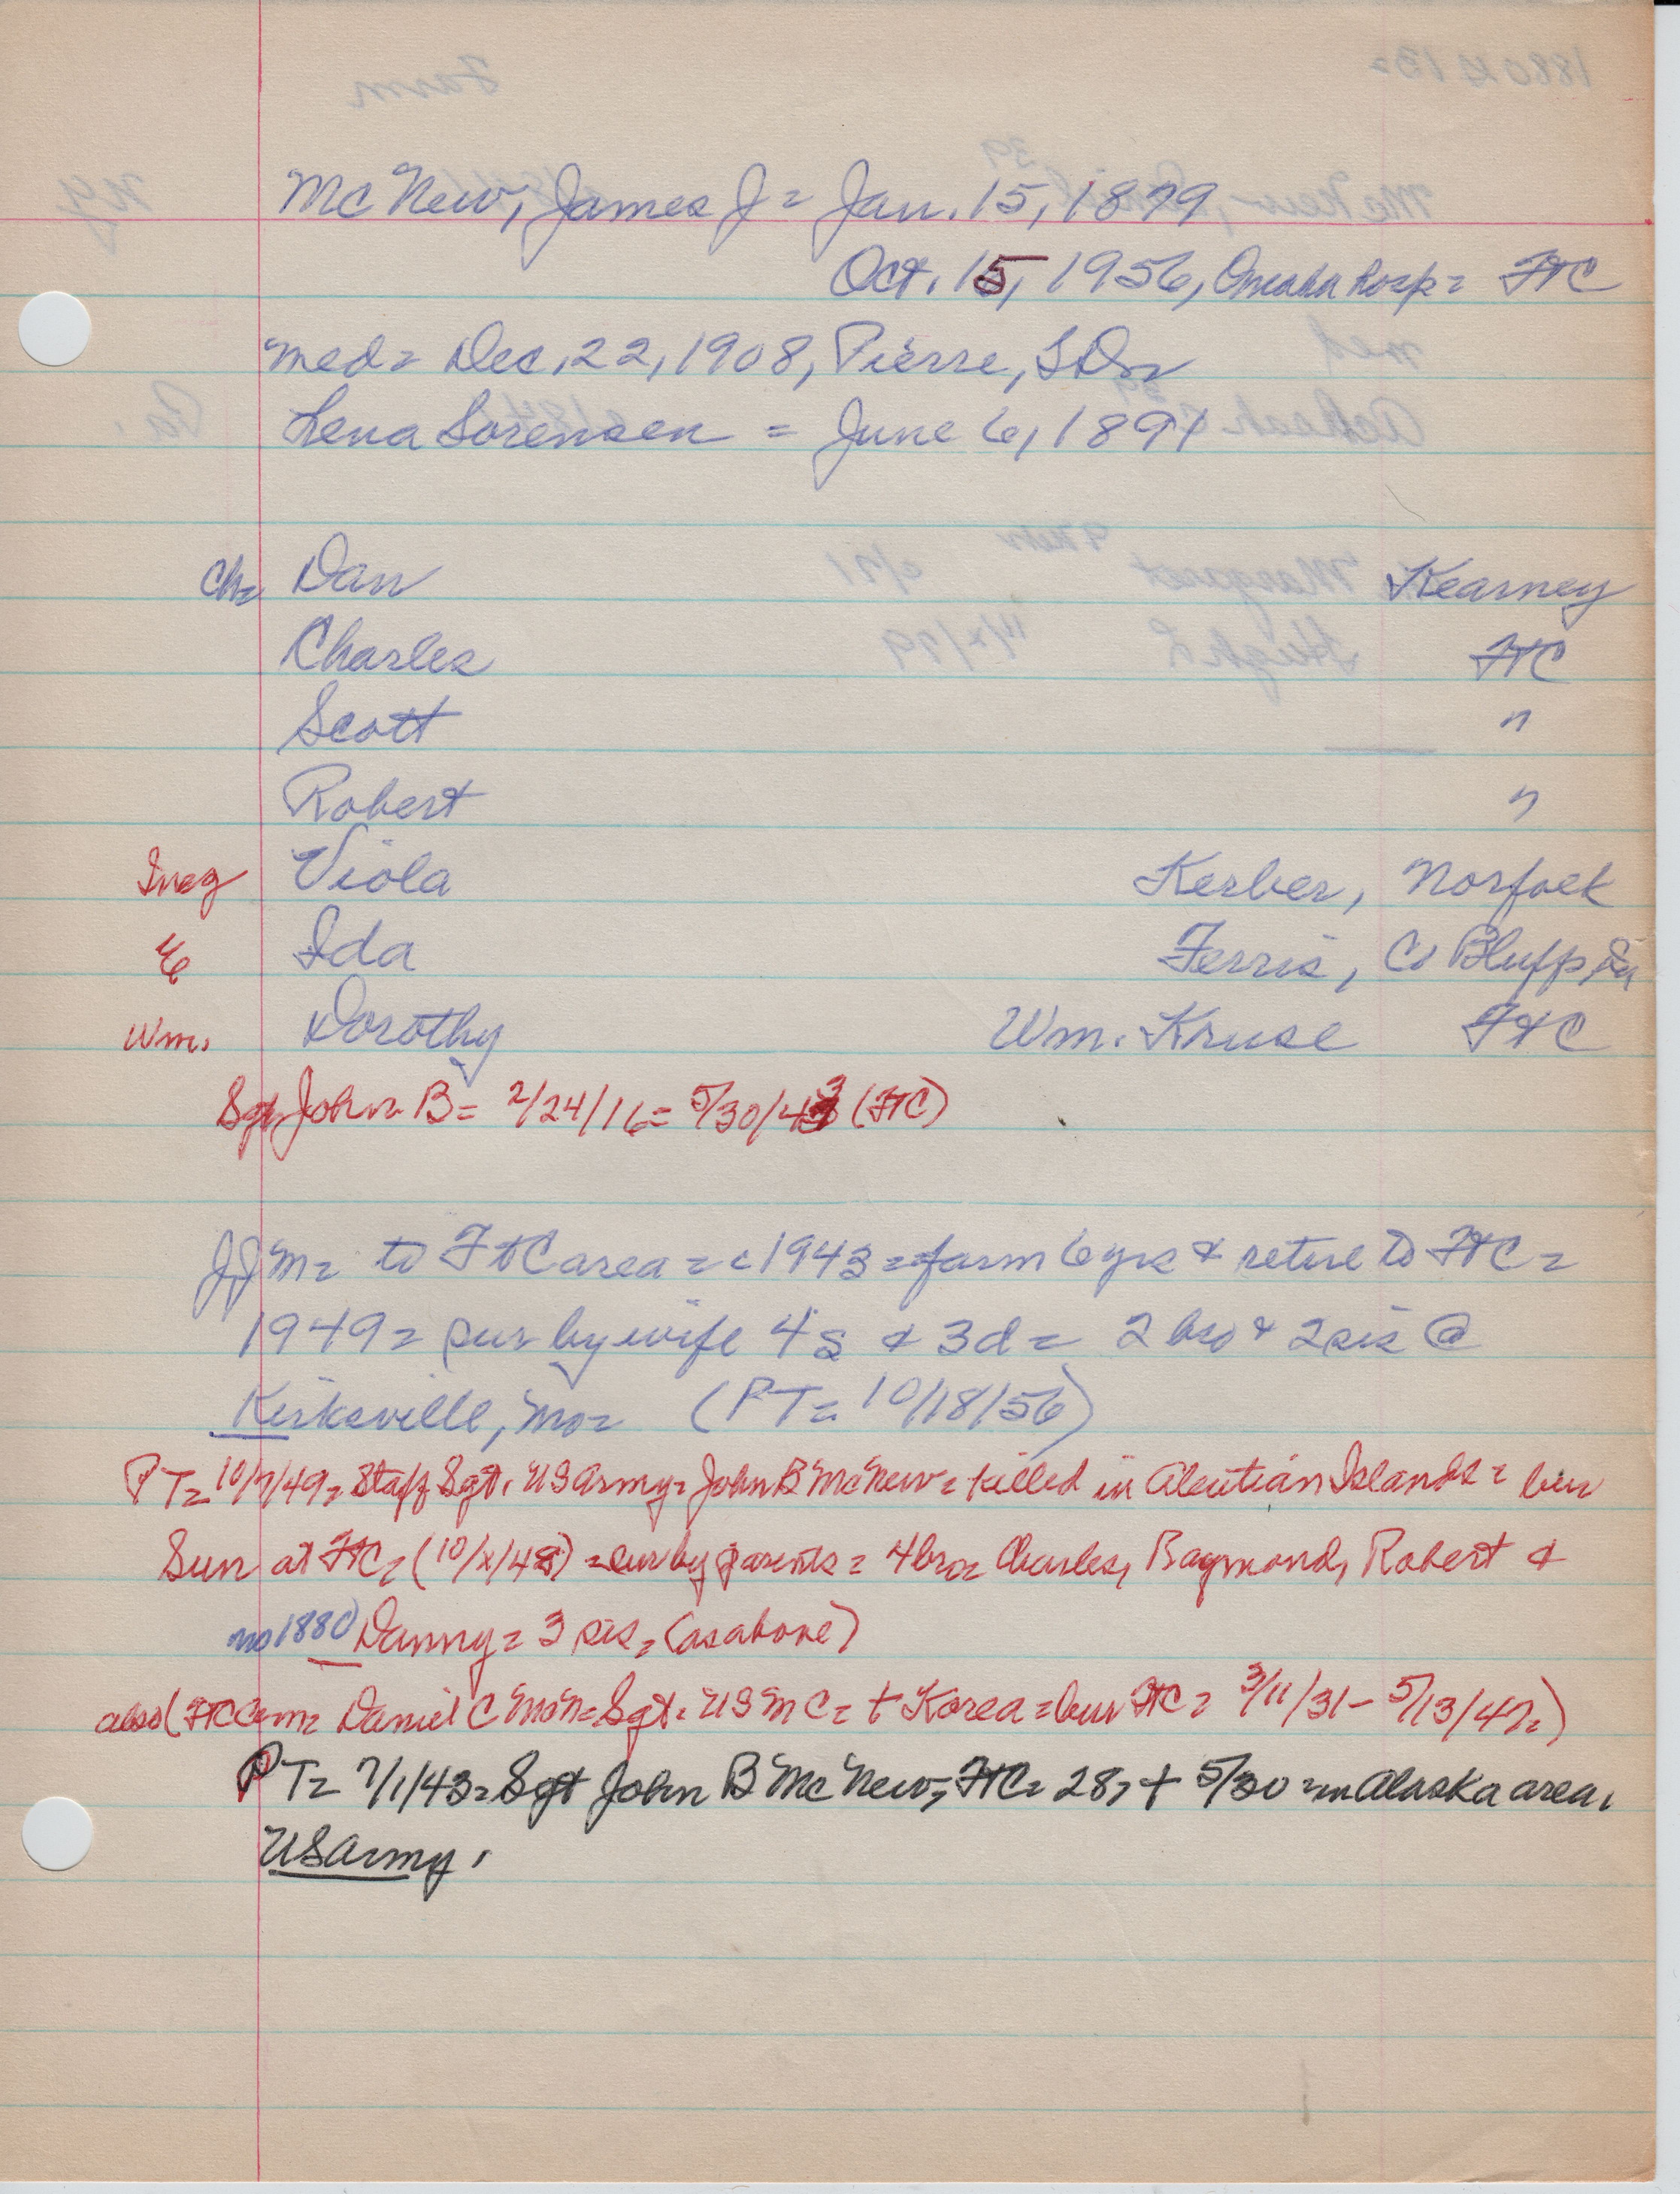 McNew, James J = Jan. 15, 1879
Oct. 15, 1956, Omaha hosp = FtC
med = Dec, 22, 1908, Pierre, SD =
Lena Sorensen = June 6, 1891
Ch = Dan Kearney
Charles FtC
Scott "
Robert "
Inez Viola Kerber, Norfolk
Ida Ferris, Co Bluffs, Ia
Wm. Dorothy Wm. Kruse FtC
Sgt John B = 2/24/16 = 5/30/43 (FtC)
JJM = to FtC area = c 1943 = farm 6 yrs & retire to FtC =
1949 = sur by wife 4s & 3d = 2 bro & 2 sis @
Kirksville, Mo = (PT = 10/18/56)
PT = 10/7/49 = Staff Sgt. US Army = John B McNew = killed in Aleutian Islands = bur
Sun at FtC = (10/x/48) = sur by parents = 4 bro = Charles, Raymond, Robert &
no 1880) Danny = 3 sis = (as above)
also (FtC Cem = Daniel C McN = Sgt. USMC = + Korea = bur FtC = 3/11/31 - 5/13/47 =)
PT = 7/1/43 = Sgt John B McNew, FtC = 28, + 5/30 = in Alaska area,
US Army.